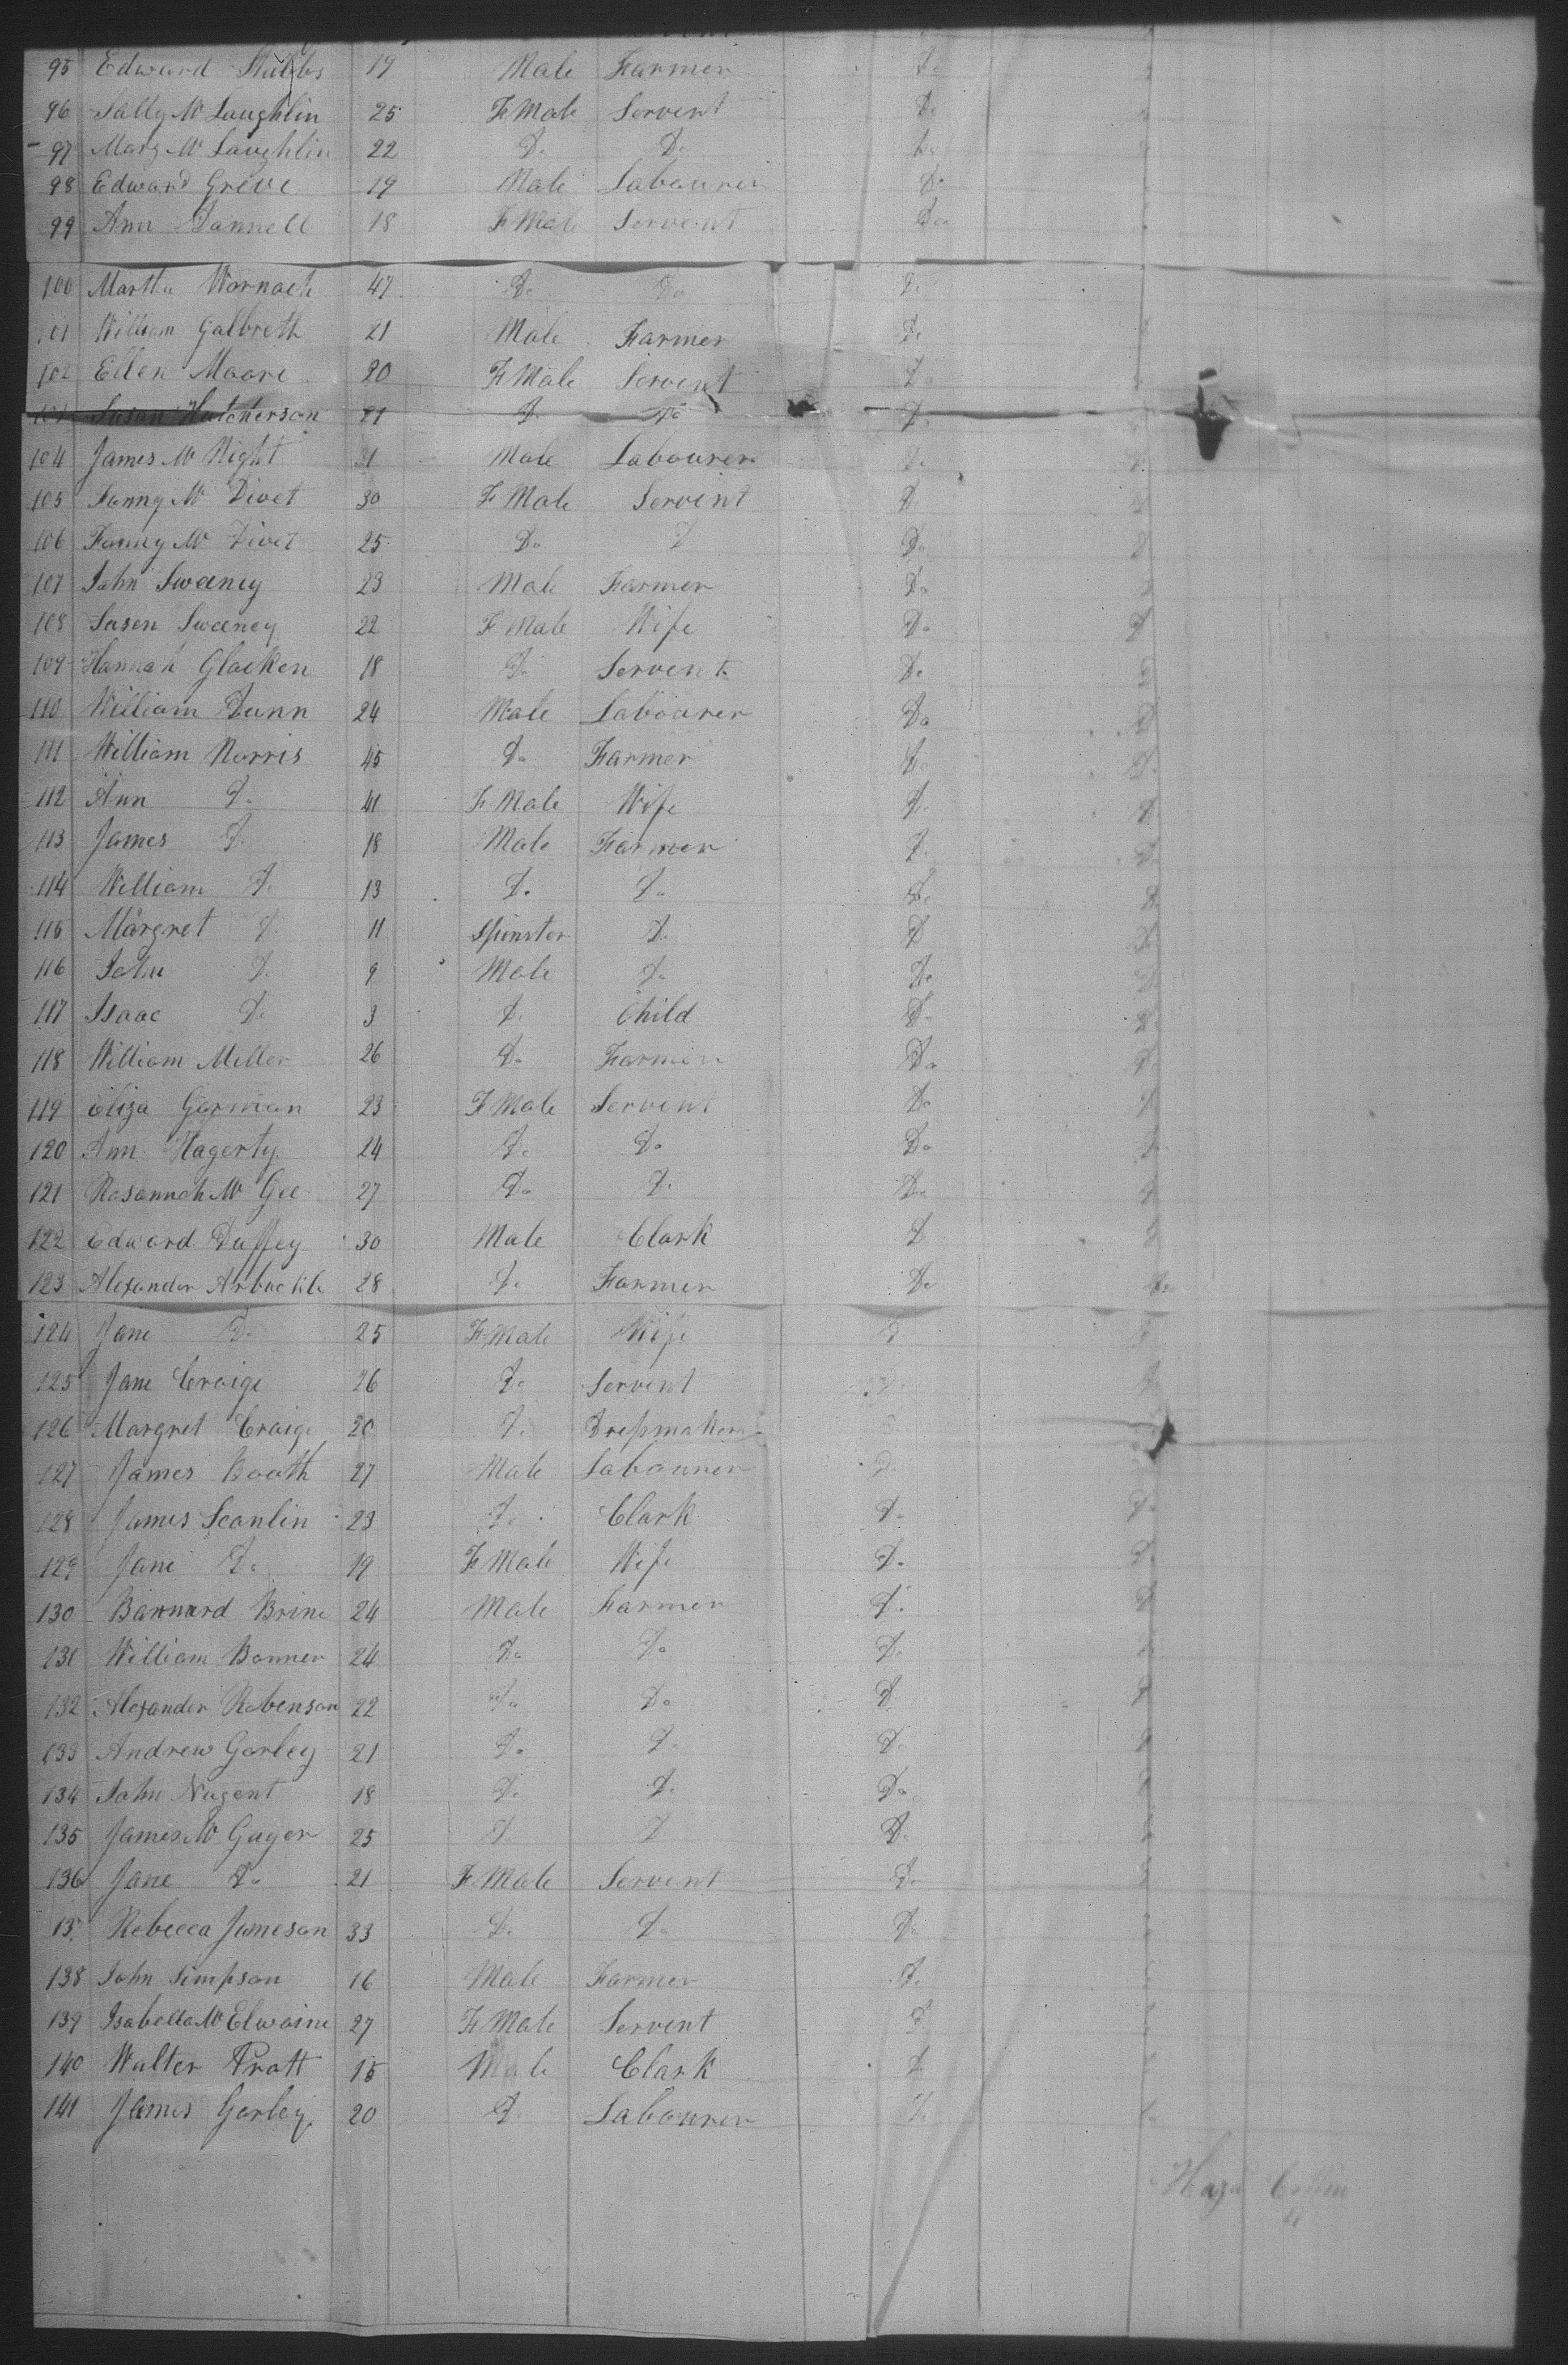 95 Edward Stubbs 19 Male Farmer Do
96 Sally Mc Laughlin 25 F Male Servent Do
97 Mary Mc Laughlin 22 Do Do Do
98 Edward Greve 19 Male Labourer Do
99 Ann Dannell 18 F Male Servent Do
100 Martha Warnach 47 Do Do Do
101 William Galbreth 21 Male Farmer Do
102 Ellen Moore 20 F Male Servent Do
103 Susan Hutcherson 21 Do Do Do
104 James Mc Night 31 Male Labourer Do Do
105 Fanny Mc Divet 30 F Male Servent Do Do
106 Fanny Mc Divet 25 Do D Do Do
107 John Sweeney 23 Male Farmer Do Do
108 Susen Sweeney 22 F Male Wife Do Do
109 Hannah Glacken 18 Do Servent Do Do
110 William Dunn 24 Male Labourer Do Do
111 William Norris 45 Do Farmer Do Do
112 Ann Do 41 F Male Wife Do Do
113 James Do 18 Male Farmer Do Do
114 William Do 13 Do Do Do Do
115 Margret Do 11 Spinster Do D Do
116 John Do 9 Male Do Do Do
117 Isaac Do 3 Do Child Do Do
118 William Miller 26 Do Farmer Do Do
119 Eliza Gorman 23 F Male Servent Do Do
120 Ann Hagerty 24 Do Do Do Do
121 Rosannah Mc Gee 27 Do Do Do Do
122 Edward Duffey 30 Male Clark D Do
123 Alexander Arbuckle 28 Do Farmer Do Do
124 Jane Do 25 F Male Wife D Do
125 Jane Craige 26 Do Servent Do Do
126 Margret Craige 20 Do Dressmaker
127 James Booth 27 Male Labourer Do
128 James Scanlin 23 Do Clark Do Do
129 Jane Do 19 F Male Wife Do Do
130 Barnard Brine 24 Male Farmer Do Do
131 William Bonner 24 Do Do Do Do
132 Alexander Robenson 22 Do Do D Do
133 Andrew Gorley 21 Do Do Do Do
134 John Nugent 18 Do Do Do Do
135 James Mc Guger 25 D D Do Do
136 Jane Do 21 F Male Servent Do Do
13 Rebecca Jameson 33 Do Do Do
138 John Simpson 16 Male Farmer Do
139 Isabella Mc Elwaine 27 F Male Servent D
140 Walter Pratt 15 Male Clark D
141 James Gorley 20 Do Labourer Do
Coffin